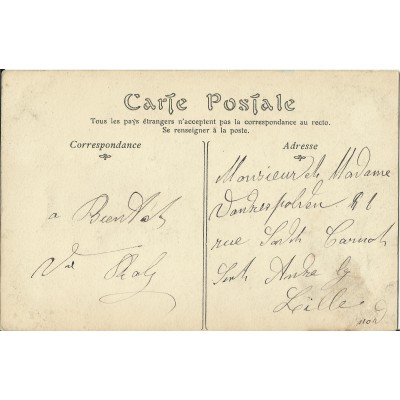 Carte Postale
Tous les pays étrangers n'acceptent pas la correspondance au recto.
Se renseigner à la poste.
Correspondance
Adresse
à Bientôt
Monsieur et Madame
rue Sadi Carnot
Saint André lez
Lille
Nord